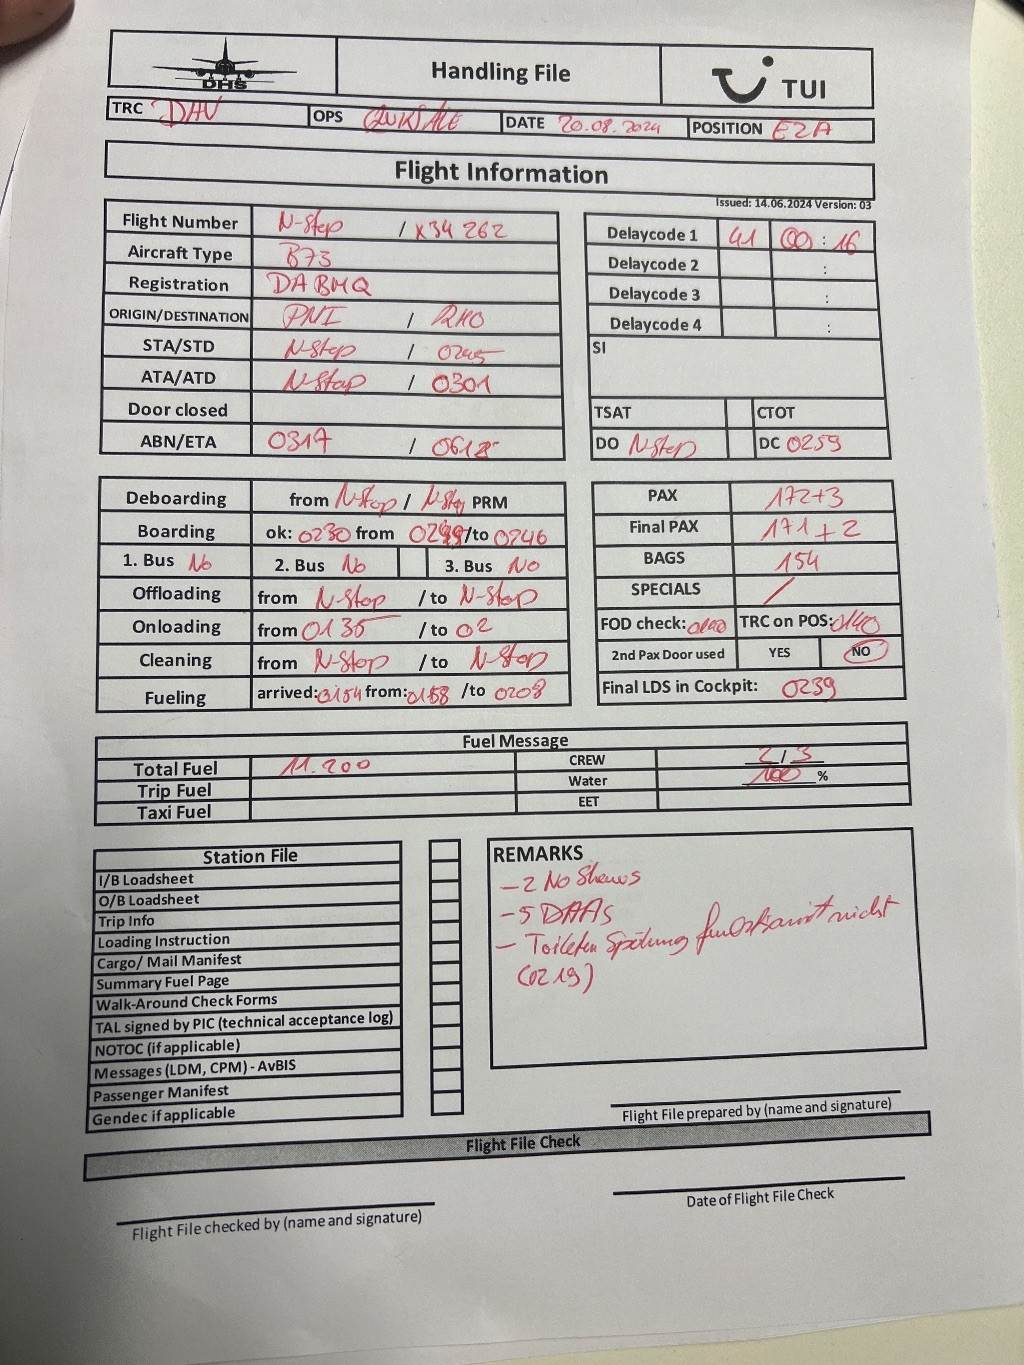 DHS
Handling File
TUI
TRC DAV OPS DATE 20.08.2024 POSITION EZA
Flight Information
Issued: 14.06.2024 Version: 03
Flight Number N-Stop / X34 262
Aircraft Type B73
Registration DABMQ
ORIGIN/DESTINATION PNI / RHO
STA/STD N-Stop / 0245
ATA/ATD N-Stop / 0301
Door closed
ABN/ETA 0317 /
Delaycode 1 41 00 : 16
Delaycode 2 :
Delaycode 3 :
Delaycode 4 :
SI
TSAT CTOT
DO N-Stop DC 0259
Deboarding from N-Stop / N-Stop PRM
Boarding ok: 0230 from /to 0246
1. Bus No 2. Bus No 3. Bus No
Offloading from N-Stop /to N-Stop
Onloading from 0135 /to 02
Cleaning from N-Stop /to N-Stop
Fueling arrived: 0154 from: 0158 /to 0208
PAX 172+3
Final PAX 171+2
BAGS 154
SPECIALS /
FOD check: 0140 TRC on POS: 0140
2nd Pax Door used YES NO
Final LDS in Cockpit: 0239
Fuel Message
Total Fuel 11.200 CREW 2/3
Trip Fuel Water 100 %
Taxi Fuel EET
Station File
I/B Loadsheet
O/B Loadsheet
Trip Info
Loading Instruction
Cargo/ Mail Manifest
Summary Fuel Page
Walk-Around Check Forms
TAL signed by PIC (technical acceptance log)
NOTOC (if applicable)
Messages (LDM, CPM) - AvBIS
Passenger Manifest
Gendec if applicable
REMARKS
- 2 No Shows
- 5 DAAs
- Toiletten Spülung funktioniert nicht
(0219)
Flight File prepared by (name and signature)
Flight File Check
Flight File checked by (name and signature)
Date of Flight File Check